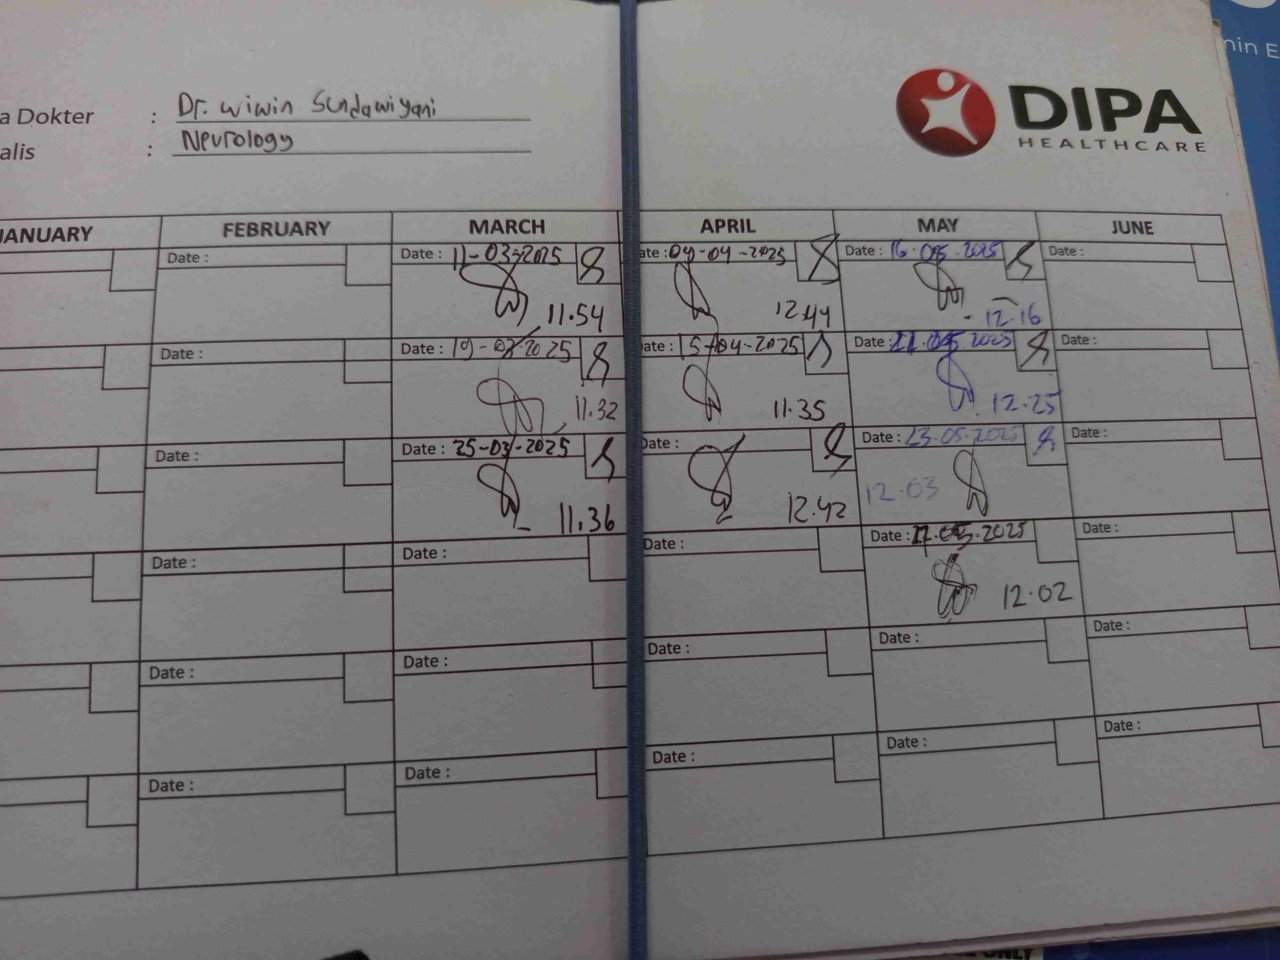 min E
a Dokter : Dr. Wiwin Sundawiyani
alis : Neurology
DIPA
HEALTHCARE
JANUARY FEBRUARY MARCH APRIL MAY JUNE
Date : Date : 11-03-2025 ate : 04-04-2025 Date : 16.05.2025 Date :
11.54 12.44 12.16
Date : Date : 19-03-2025 Date : 15-04-2025 Date : 2025 Date :
11.32 11.35 12.25
Date : Date : 25-03-2025 Date : Date : 23.05.2025 Date :
11.36 12.42 12.03
Date : Date : Date : Date : .05.2025 Date :
12.02
Date : Date : Date : Date : Date :
Date : Date : Date : Date : Date :
ONLY